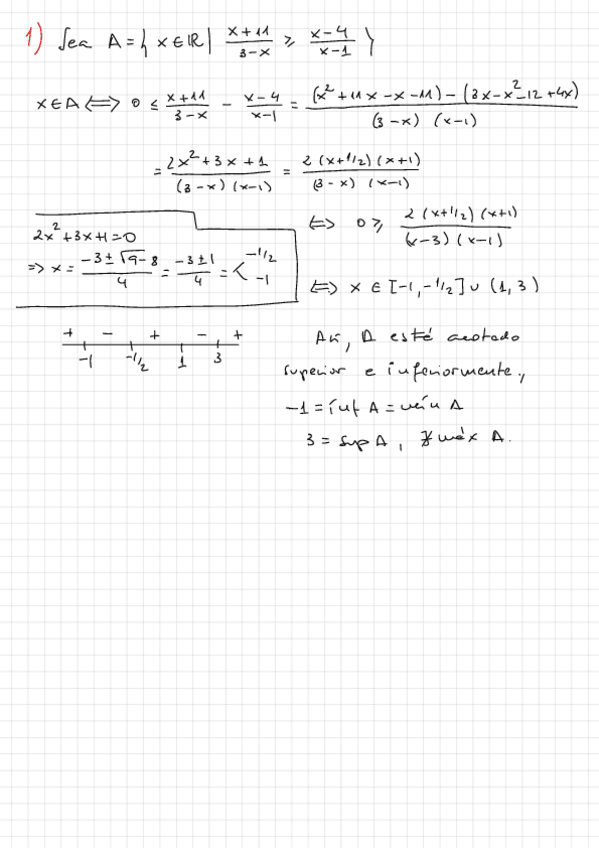 1) Sea A = { x ∈ ℝ | (x+11)/(3-x) ≥ (x-4)/(x-1) }
x ∈ A ⟺ 0 ≤ (x+11)/(3-x) - (x-4)/(x-1) = ((x²+11x-x-11) - (3x-x²-12+4x))/((3-x)(x-1))
= (2x²+3x+1)/((3-x)(x-1)) = (2(x+1/2)(x+1))/((3-x)(x-1))
⟺ 0 ≥ (2(x+1/2)(x+1))/((x-3)(x-1))
2x²+3x+1=0
⇒ x = (-3±√(9-8))/4 = (-3±1)/4 = < -1/2
-1
⟺ x ∈ [-1, -1/2] ∪ (1, 3)
+ - + - +
-1 -1/2 1 3
Así, A está acotado
superior e inferiormente,
-1 = ínf A = mín A
3 = sup A, ∄ máx A.